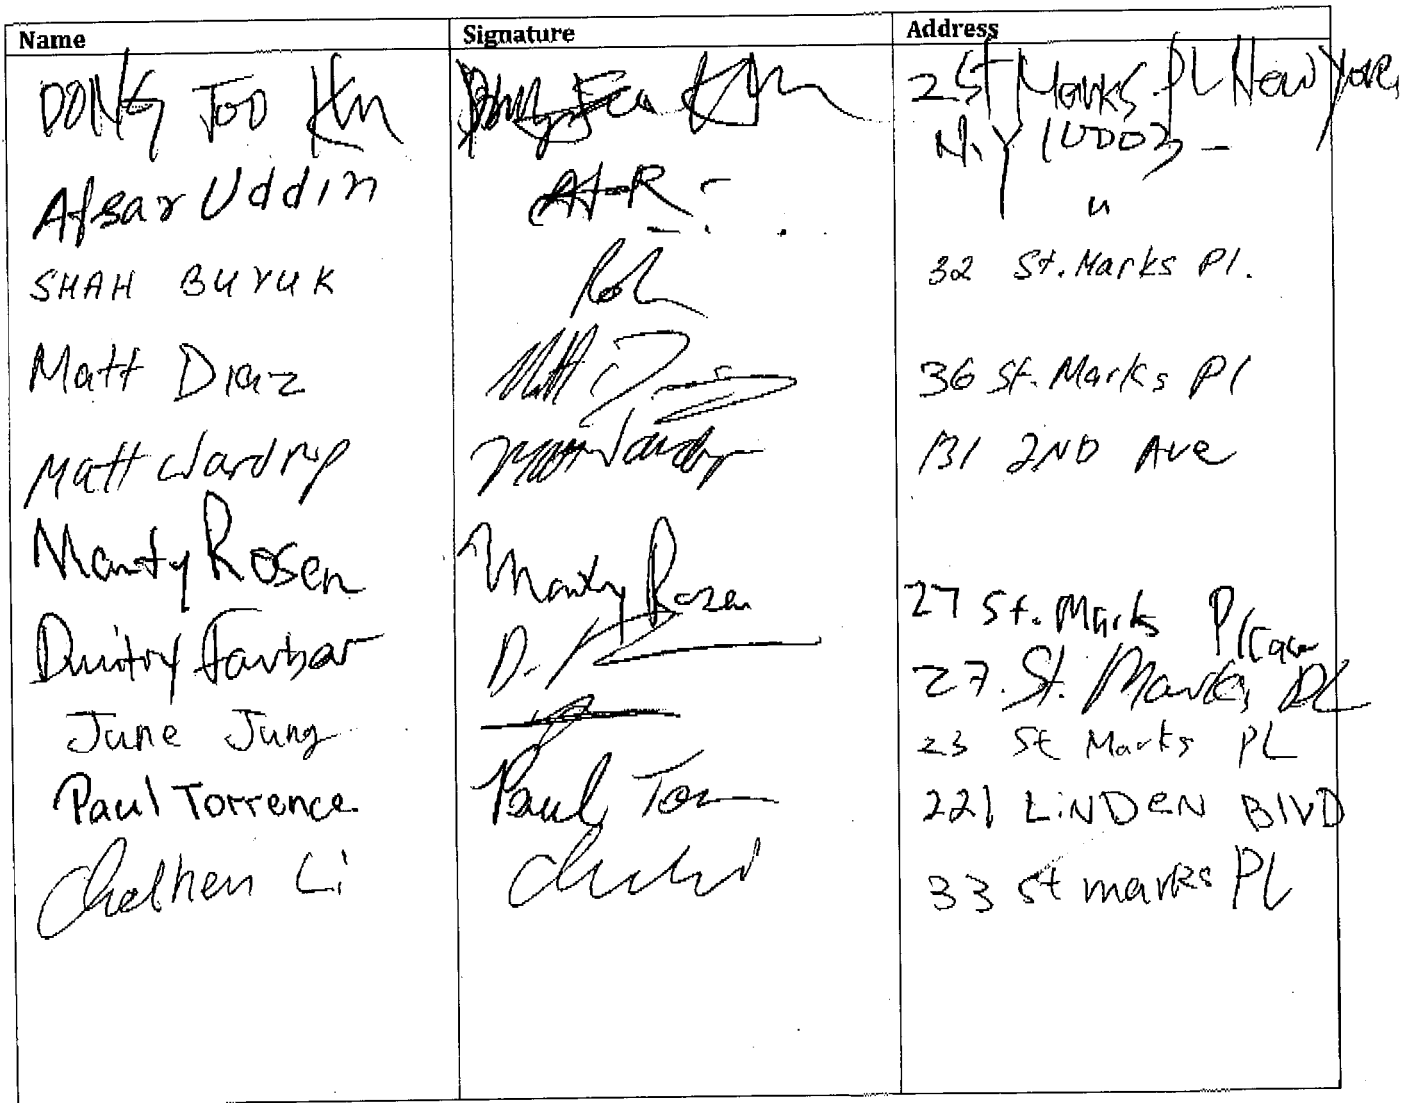 Name Signature Address
DONG JOO Kim 2 St Marks PL New York,
N.Y 10003 -
Afsar Uddin "
SHAH BUYUK 32 St. Marks Pl.
Matt Diaz Matt D 36 St. Marks Pl
Matt Wardrip Matt Wardrip 131 2ND Ave
Marty Rosen Marty Rosen 27 St. Marks Place
Dmitry Farber 27 St. Marks PL
June Jung 23 St Marks PL
Paul Torrence Paul Tor 221 LINDEN BLVD
Li 33 St marks PL